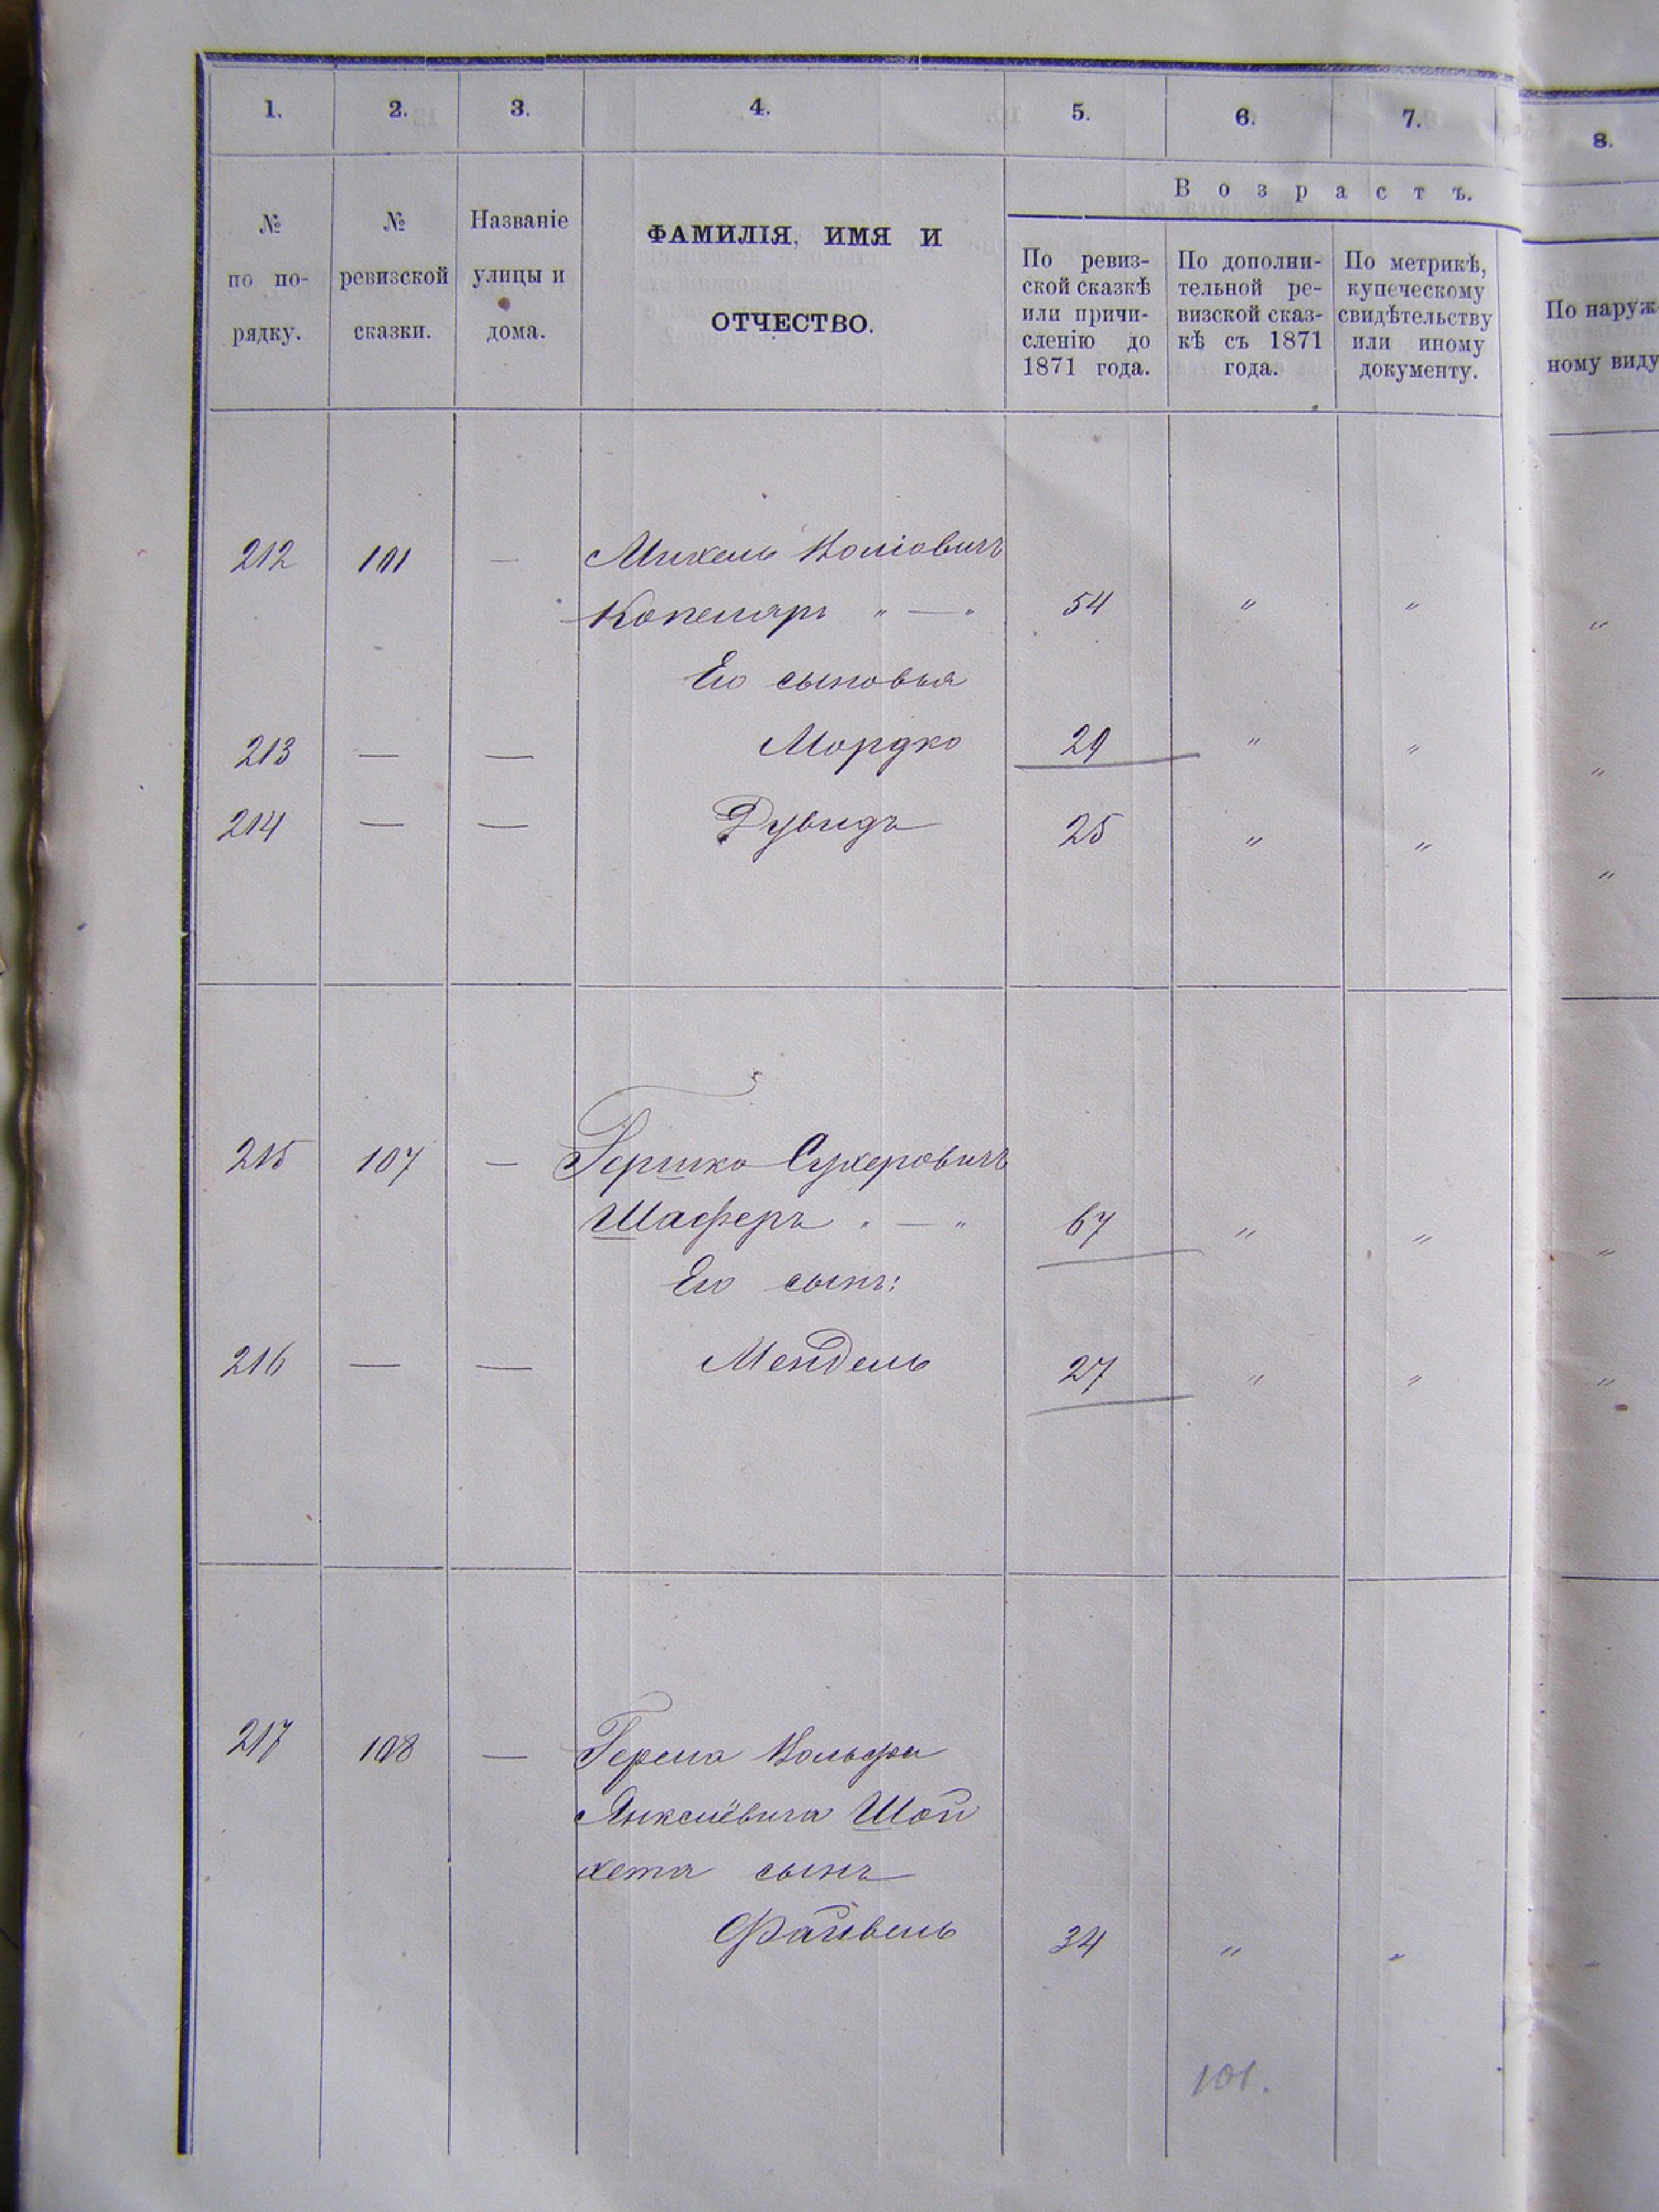 1. 2. 3. 4. 5. 6. 7. 8.
Возрастъ.
№ по по-рядку.
№ ревизской сказки.
Названіе улицы и дома.
ФАМИЛІЯ, ИМЯ И
ОТЧЕСТВО.
По ревиз-
ской сказкѣ
или причи-
сленію до
1871 года.
По дополни-
тельной ре-
визской сказ-
кѣ съ 1871
года.
По метрикѣ,
купеческому
свидѣтельству
или иному
документу.
По наруж-
ному виду
212 101 — Михель
Копеляръ " — " 54 " " "
Его сыновья
213 — — Мордко 29 " " "
214 — — Дувидъ 25 " " "
215 107 — Гершко Сухеровичъ
Шаферъ " — " 67 " " "
Его сынъ:
216 — — Мендель 27 " " "
217 108 — Вольфа
Янкелёвича Шой
хета сынъ
Файвель 34 " " "
101.